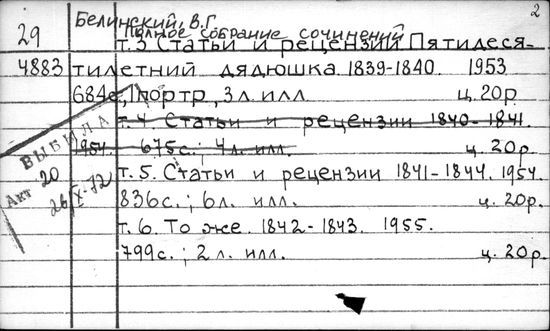 2
Белинский, В.Г.
29 Полное собрание сочинений
т.3 Статьи и рецензии Пятидеся-
4883 тилетний дядюшка 1839-1840. 1953
684с., 1 портр, 3 л. илл. ц. 20р.
т.4 Статьи и рецензии 1840-1841.
1954. 675с.; 4 л. илл. ц. 20р.
ВЫБИЛА
Акт 20
26/X-72
т.5. Статьи и рецензии 1841-1844. 1954.
836с.; 6 л. илл. ц. 20р.
т.6. То же. 1842-1843. 1955.
799с.; 2 л. илл. ц. 20р.